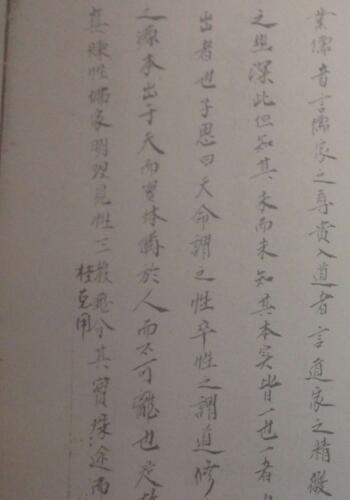 業儒者言儒家之尊貴入道者言道家之精微
之幽深此但知其末而未知其本实皆一也一者
出者也子思曰天命謂之性率性之謂道修
之源本出于天而實体備於人而不可離也是故
真煉性儒家明理見性三教雖分其實殊途而
桂克用